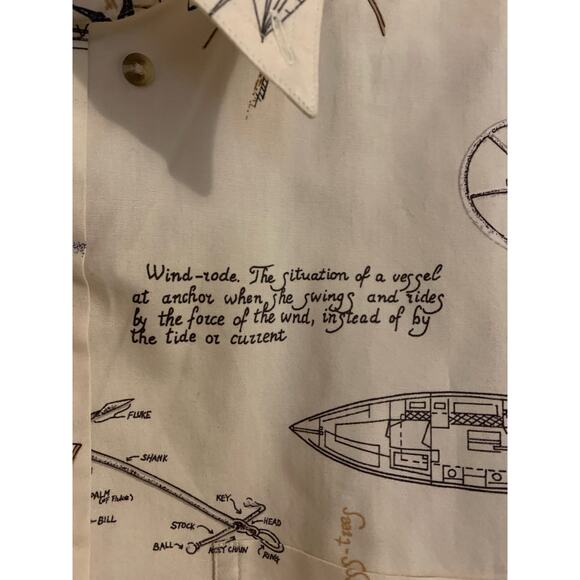 Wind-rode. The situation of a vessel
at anchor when she swings and rides
by the force of the wnd, instead of by
the tide or current
FLUKE
SHANK
PALM
(of Fluke)
BILL
KEY
HEAD
STOCK
BALL
RING